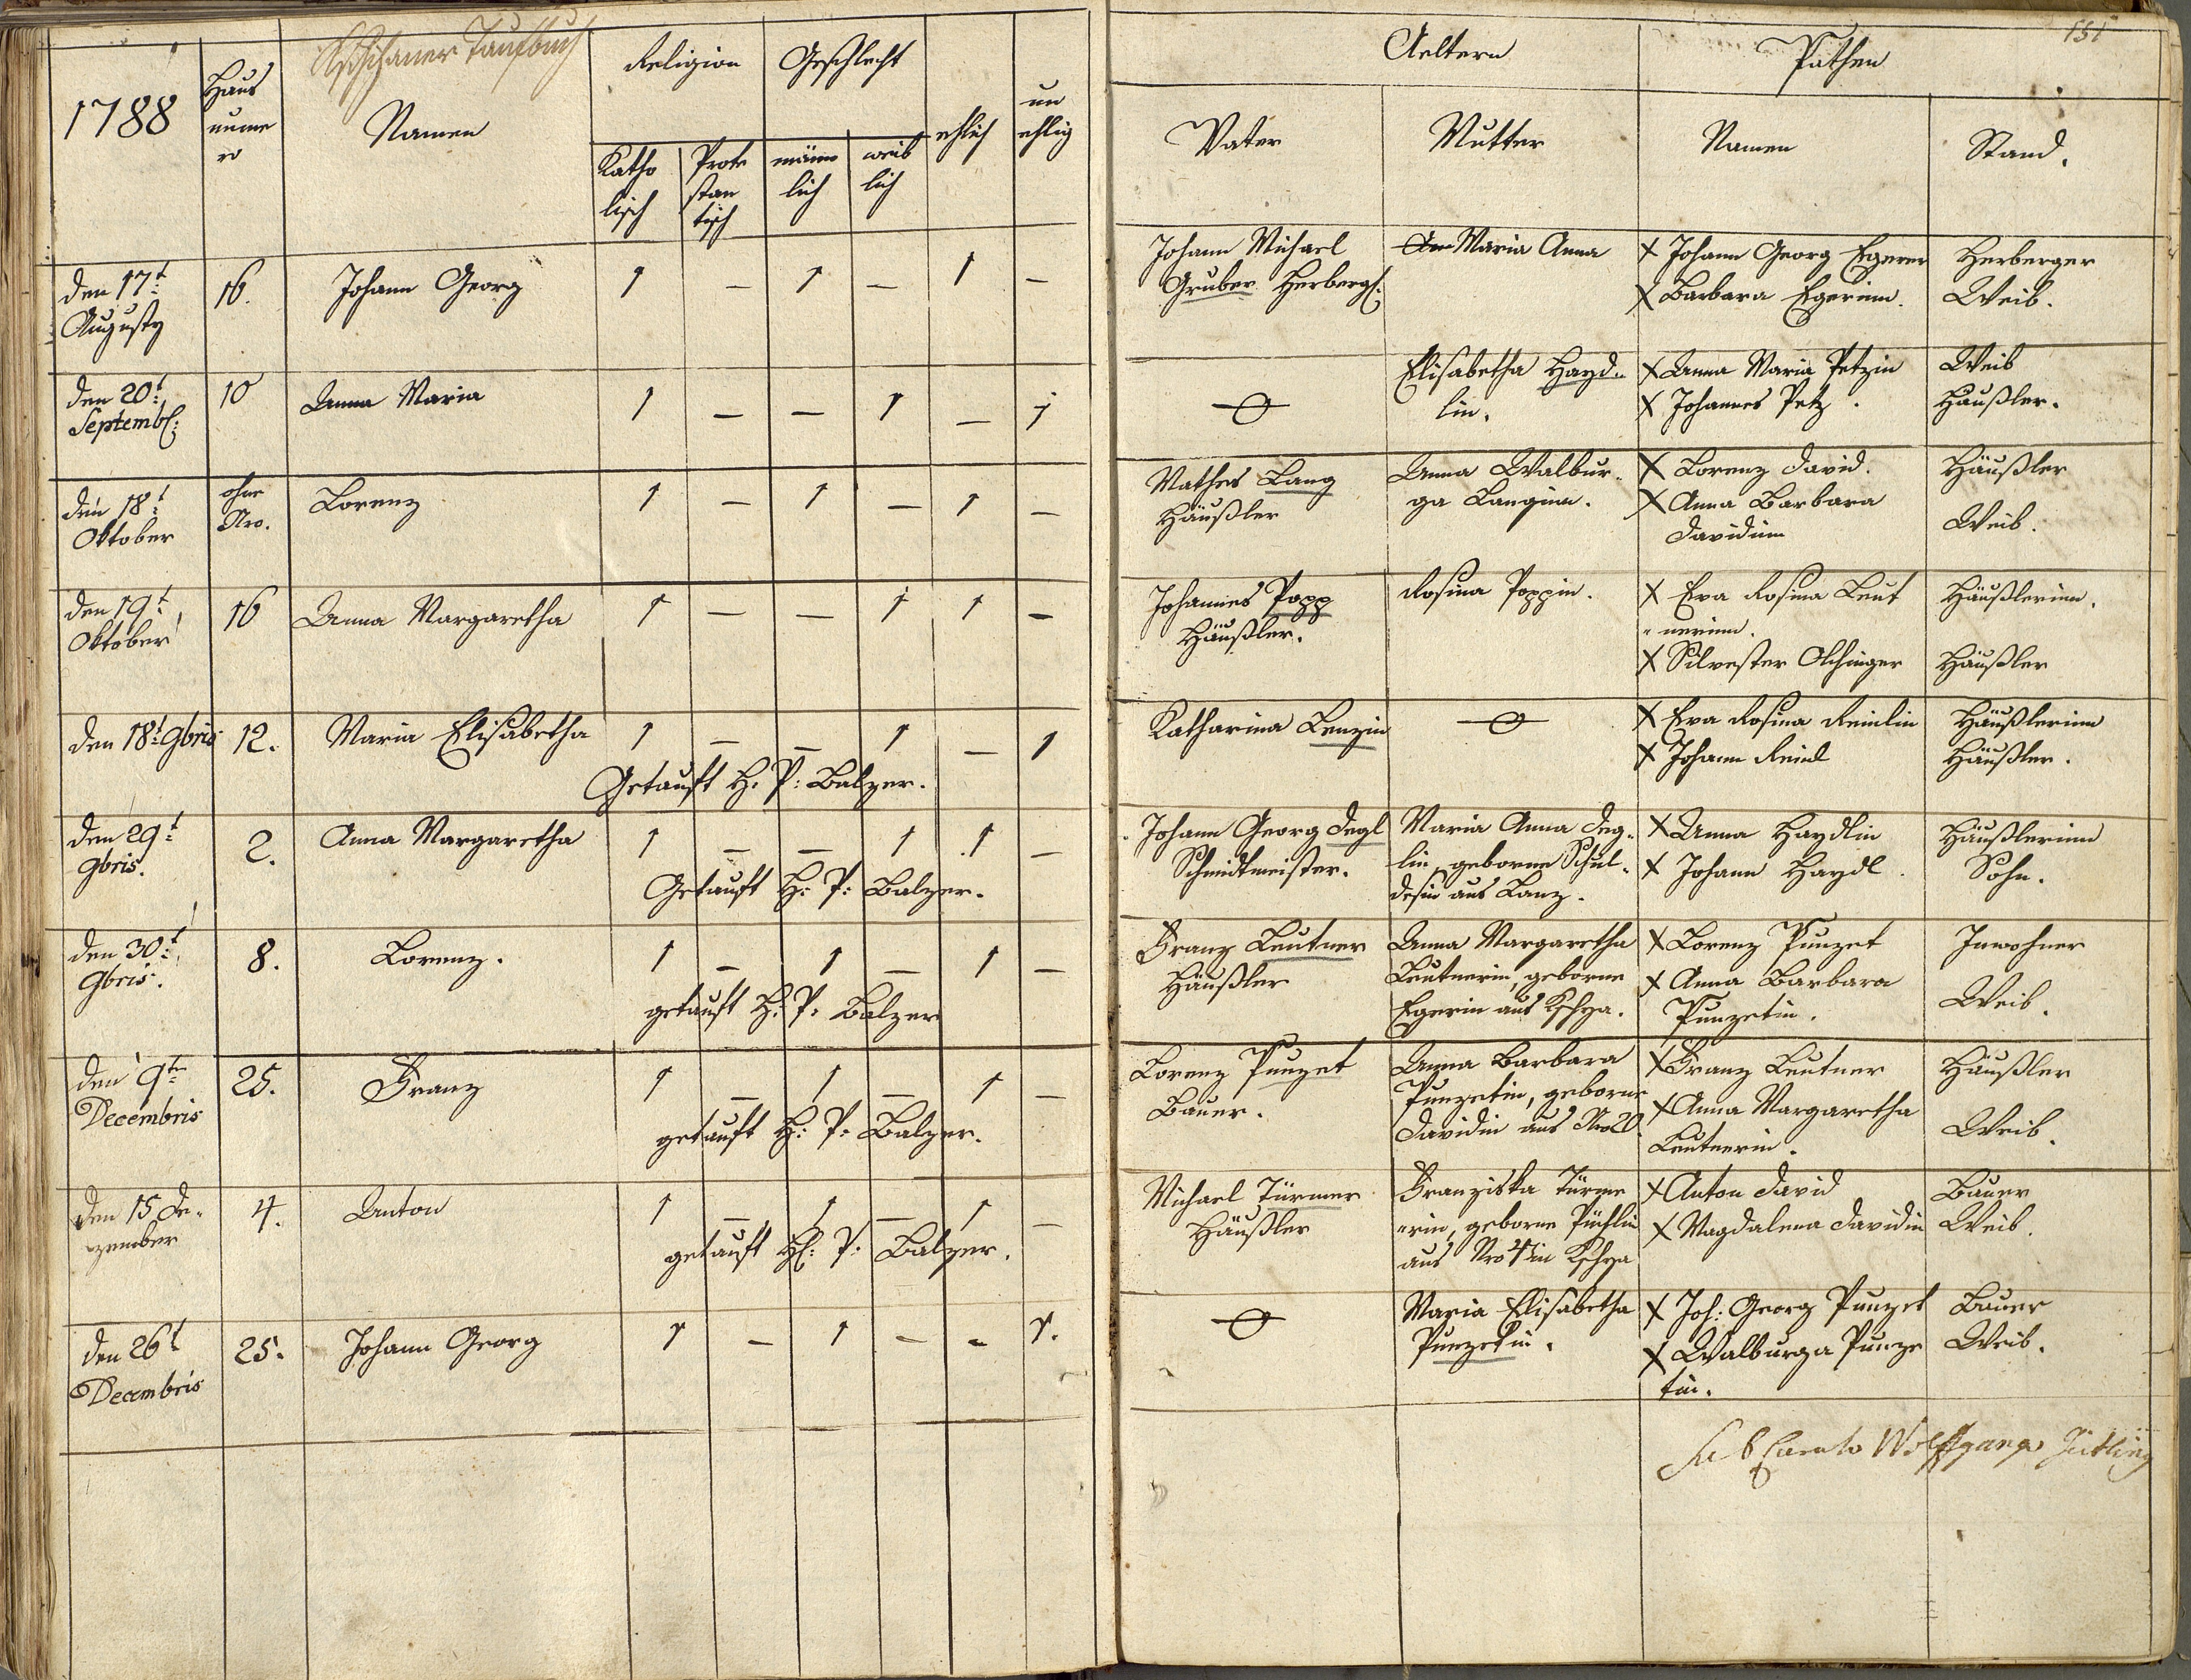 Taufbuch
1788
Haus
nume
ro
Namen
Religion
Geschlecht
Katho
lisch
Prote
stan
tisch
männ
lich
weib
lich
ehlich
un
ehlig
den 17t:
Augusty
16.
Johann Georg
1 – 1 – 1 –
den 20t:
Septemb:
10
Anna Maria
1 – – 1 – 1
den 18t:
Oktober
ohne
Nro.
Lorenz
1 – 1 – 1 –
den 19t:
Oktober
16
Anna Margaretha
1 – – 1 1 –
den 18t: 9bris
12.
Maria Elisabetha
1 – – 1 – 1
Getauft H. P: Balzer.
den 29t:
9bris.
2.
Anna Margaretha
1 – – 1 1 –
Getauft H: P: Balzer.
den 30t:
9bris.
8.
Lorenz.
1 – 1 – 1 –
getauft H: P. Balzer
den 9te
Decembris
25.
Franz
1 – 1 – 1 –
getauft H: P: Balzer.
den 15 De-
zember
4.
Anton
1 – 1 – 1 –
getauft H: P: Balzer.
den 26t
Decembris
25.
Johann Georg
1 – 1 – – 1.
151
Aeltern
Pathen
Vater
Mutter
Namen
Stand.
Johann Michael
Gruber Herberg:
Maria Anna
X Johann Georg Egerer
X Barbara Egerinn.
Herberger
Weib.
Elisabetha Hayd-
lin.
X Anna Maria Petzin
X Johannes Petz.
Weib
Häußler.
Mathes Lang
Häußler
Anna Walbur-
ga Langinn.
X Lorenz David.
X Anna Barbara
Davidinn
Häußler
Weib.
Johannes Popp
Häußler.
Rosina Poppin.
X Eva Rosina Leut
nerinn.
X Silvester Olchinger
Häußlerinn.
Häußler
Katharina Lenzin
X Eva Rosina Reinlin
X Johann Reinl
Häußlerinn
Häußler.
Johann Georg Degl
Schmidtmeister.
Maria Anna Deg-
lin, geborne Schul-
desin aus Lanz.
X Anna Haydlin
X Johann Haydl
Häußlerinn
Sohn.
Franz Leutner
Häußler
Anna Margaretha
Leutnerin, geborne
Egerin aus
X Lorenz Punzet
X Anna Barbara
Punzetin.
Inwohner
Weib.
Lorenz Punzet
Bauer.
Anna Barbara
Punzetin, geborne
Davidin aus Nro 20.
X Franz Leutner
X Anna Margaretha
Leutnerin.
Häußler
Weib.
Michael Türmer
Häußler
Franziska Türme
rin, geborne Püchlin
aus Nro 4 in
X Anton David
X Magdalena Davidin
Bauer
Weib.
Maria Elisabetha
Punzetin.
X Joh: Georg Punzet
X Walburga Punze
tin.
Bauer
Weib.
Sub Curato Wolffgango